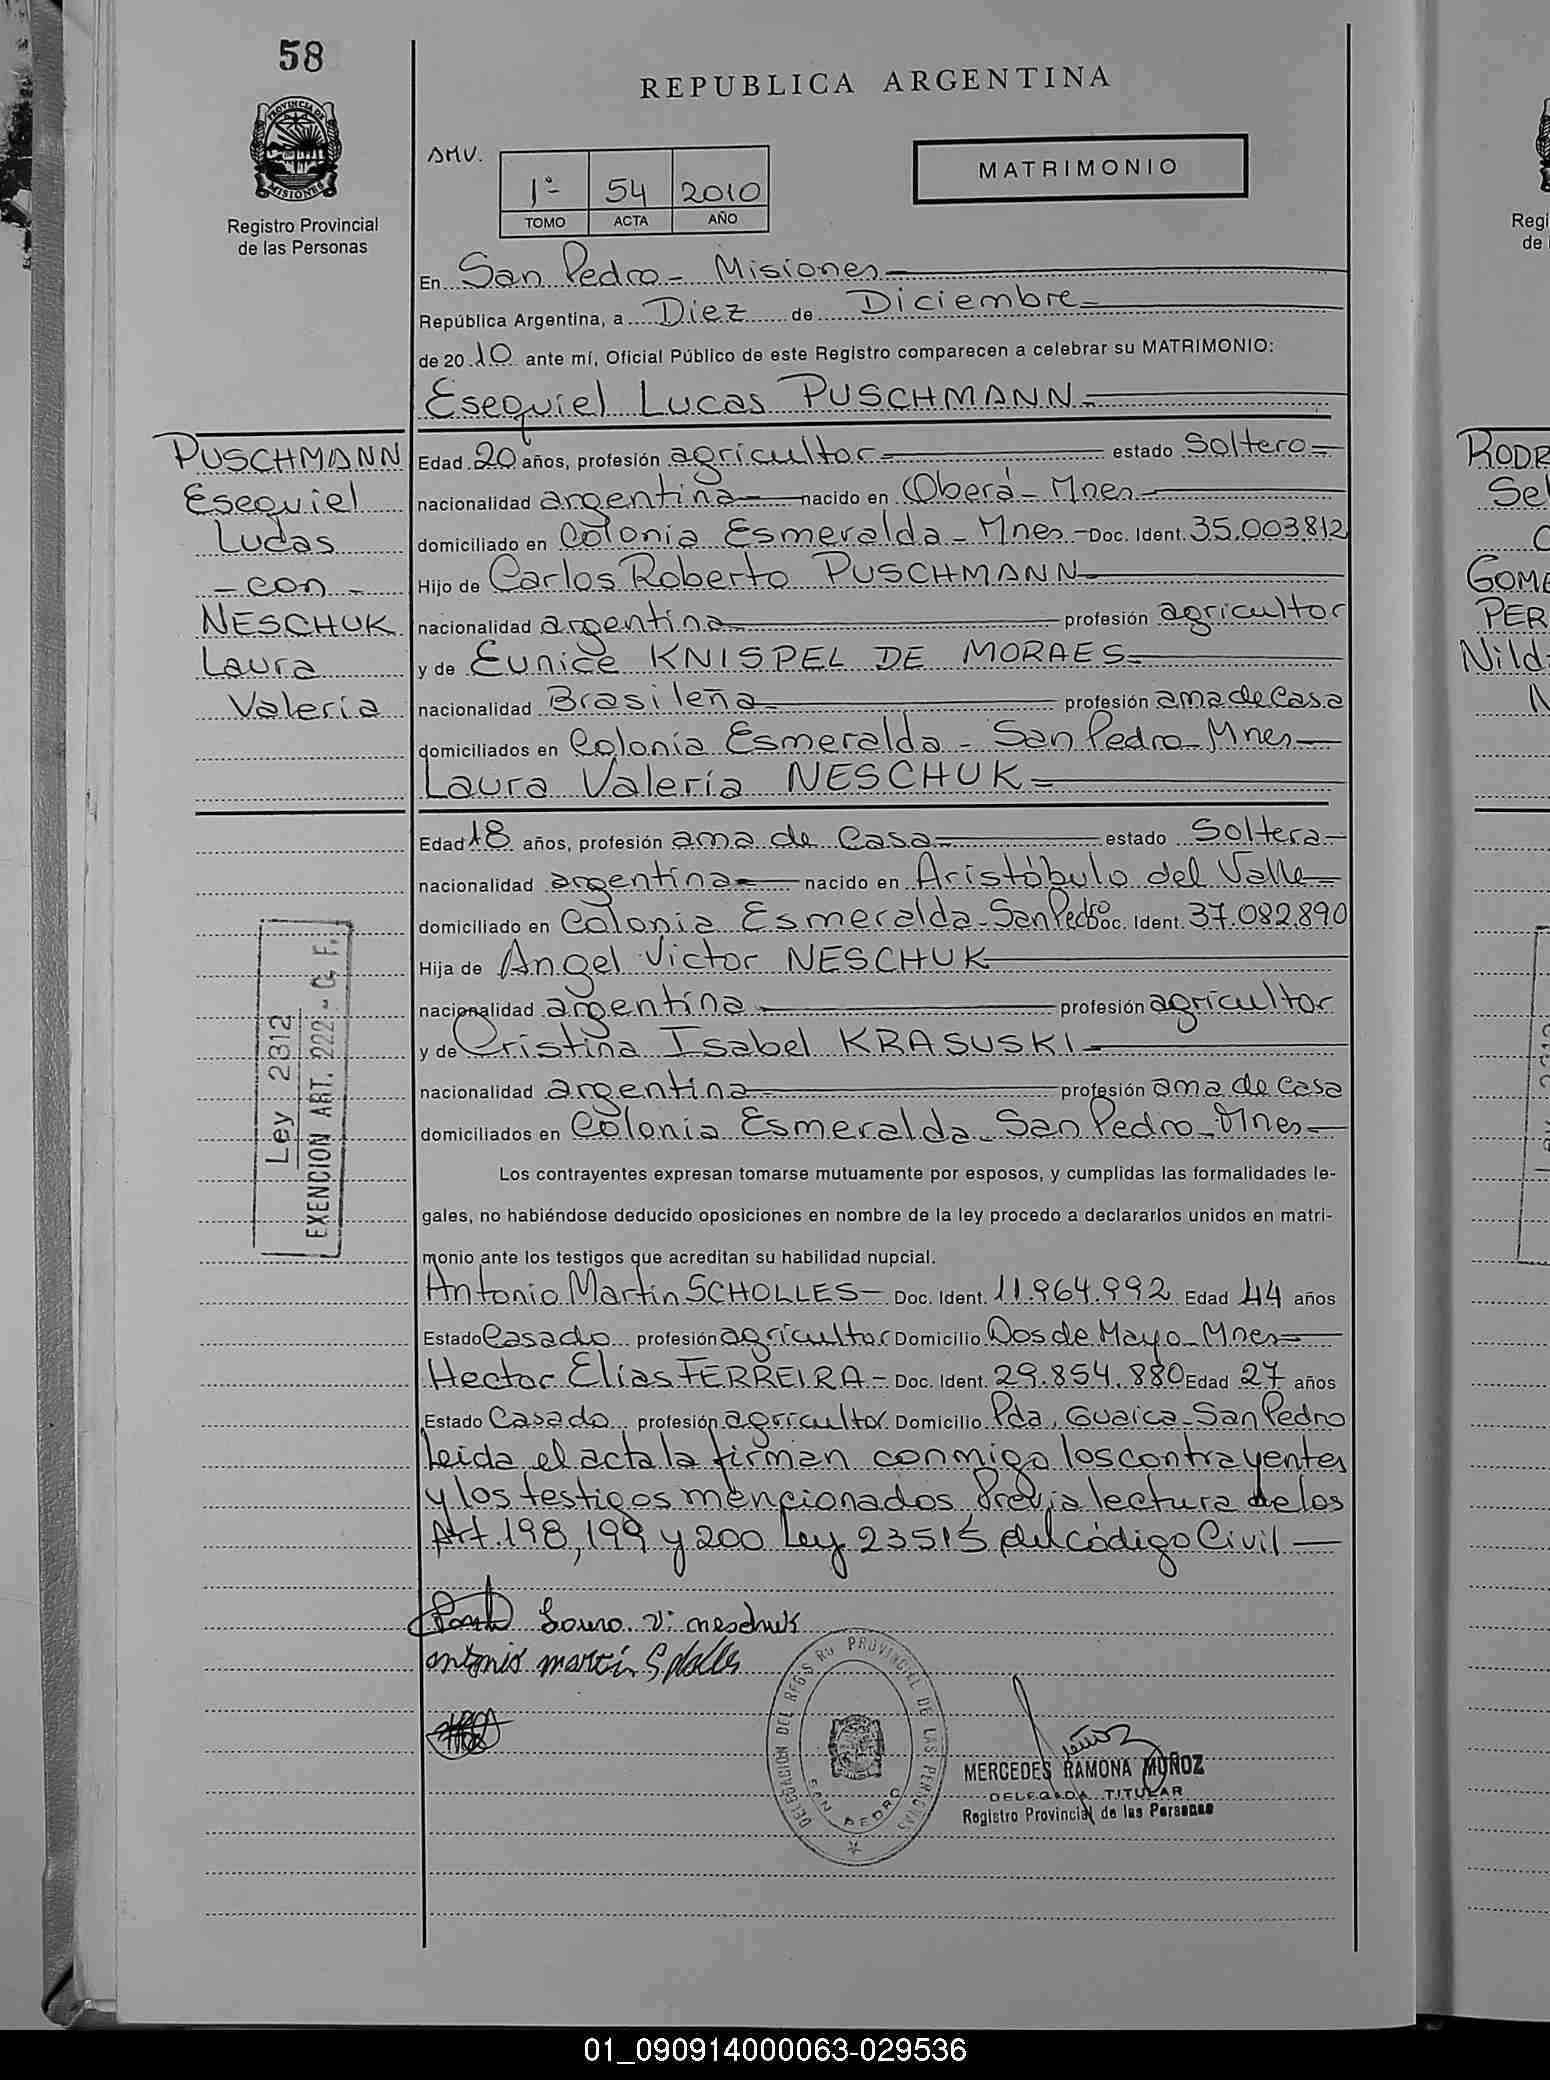 58
REPUBLICA ARGENTINA
PROVINCIA DE
MISIONES
Registro Provincial
de las Personas
SMV.
1º 54 2010
TOMO ACTA AÑO
MATRIMONIO
En San Pedro - Misiones
República Argentina, a Diez de Diciembre
de 2010 ante mí, Oficial Público de este Registro comparecen a celebrar su MATRIMONIO:
Esequiel Lucas PUSCHMANN
PUSCHMANN
Esequiel
Lucas
- con -
NESCHUK
Laura
Valeria
Edad 20 años, profesión agricultor estado Soltero
nacionalidad argentina nacido en Oberá - Mnes
domiciliado en Colonia Esmeralda - Mnes - Doc. Ident. 35.003.812
Hijo de Carlos Roberto PUSCHMANN
nacionalidad argentina profesión agricultor
y de Eunice KNISPEL DE MORAES
nacionalidad Brasileña profesión ama de Casa
domiciliados en Colonia Esmeralda - San Pedro - Mnes
Laura Valeria NESCHUK
Edad 18 años, profesión ama de Casa estado Soltera
nacionalidad argentina nacido en Aristóbulo del Valle
domiciliado en Colonia Esmeralda - San Pedro Doc. Ident. 37.082.890
Hija de Angel Victor NESCHUK
nacionalidad argentina profesión agricultor
y de Cristina Isabel KRASUSKI
nacionalidad argentina profesión ama de Casa
domiciliados en Colonia Esmeralda - San Pedro - Mnes
Ley 2312
EXENCION ART. 222 - C. F.
Los contrayentes expresan tomarse mutuamente por esposos, y cumplidas las formalidades le-
gales, no habiéndose deducido oposiciones en nombre de la ley procedo a declararlos unidos en matri-
monio ante los testigos que acreditan su habilidad nupcial.
Antonio Martin SCHOLLES - Doc. Ident. 11.964.992 Edad 44 años
Estado Casado profesión agricultor Domicilio Dos de Mayo - Mnes
Hector Elias FERREIRA - Doc. Ident. 29.854.880 Edad 27 años
Estado Casado profesión agricultor Domicilio Pda. Guaica - San Pedro
Leida el acta la firman conmigo los contrayentes
y los testigos mencionados, Previa lectura de los
Art. 198, 199 y 200 Ley 23515 del Código Civil
Laura V. neschuk
antonio martin Scholles
DELEGACION DEL REGISTRO PROVINCIAL DE LAS PERSONAS
SAN PEDRO
MERCEDES RAMONA MUÑOZ
DELEGADA TITULAR
Registro Provincial de las Personas
Regi
de
RODR
Sel
GOME
PER
Nild
01_090914000063-029536